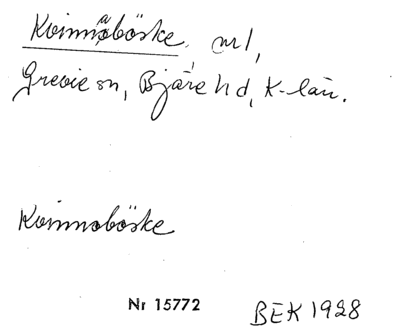 Kvinnaböske. nr 1,
Grevie sn, Bjäre hd, K-län.
Kvinnoböske
Nr 15772 BEK 1928